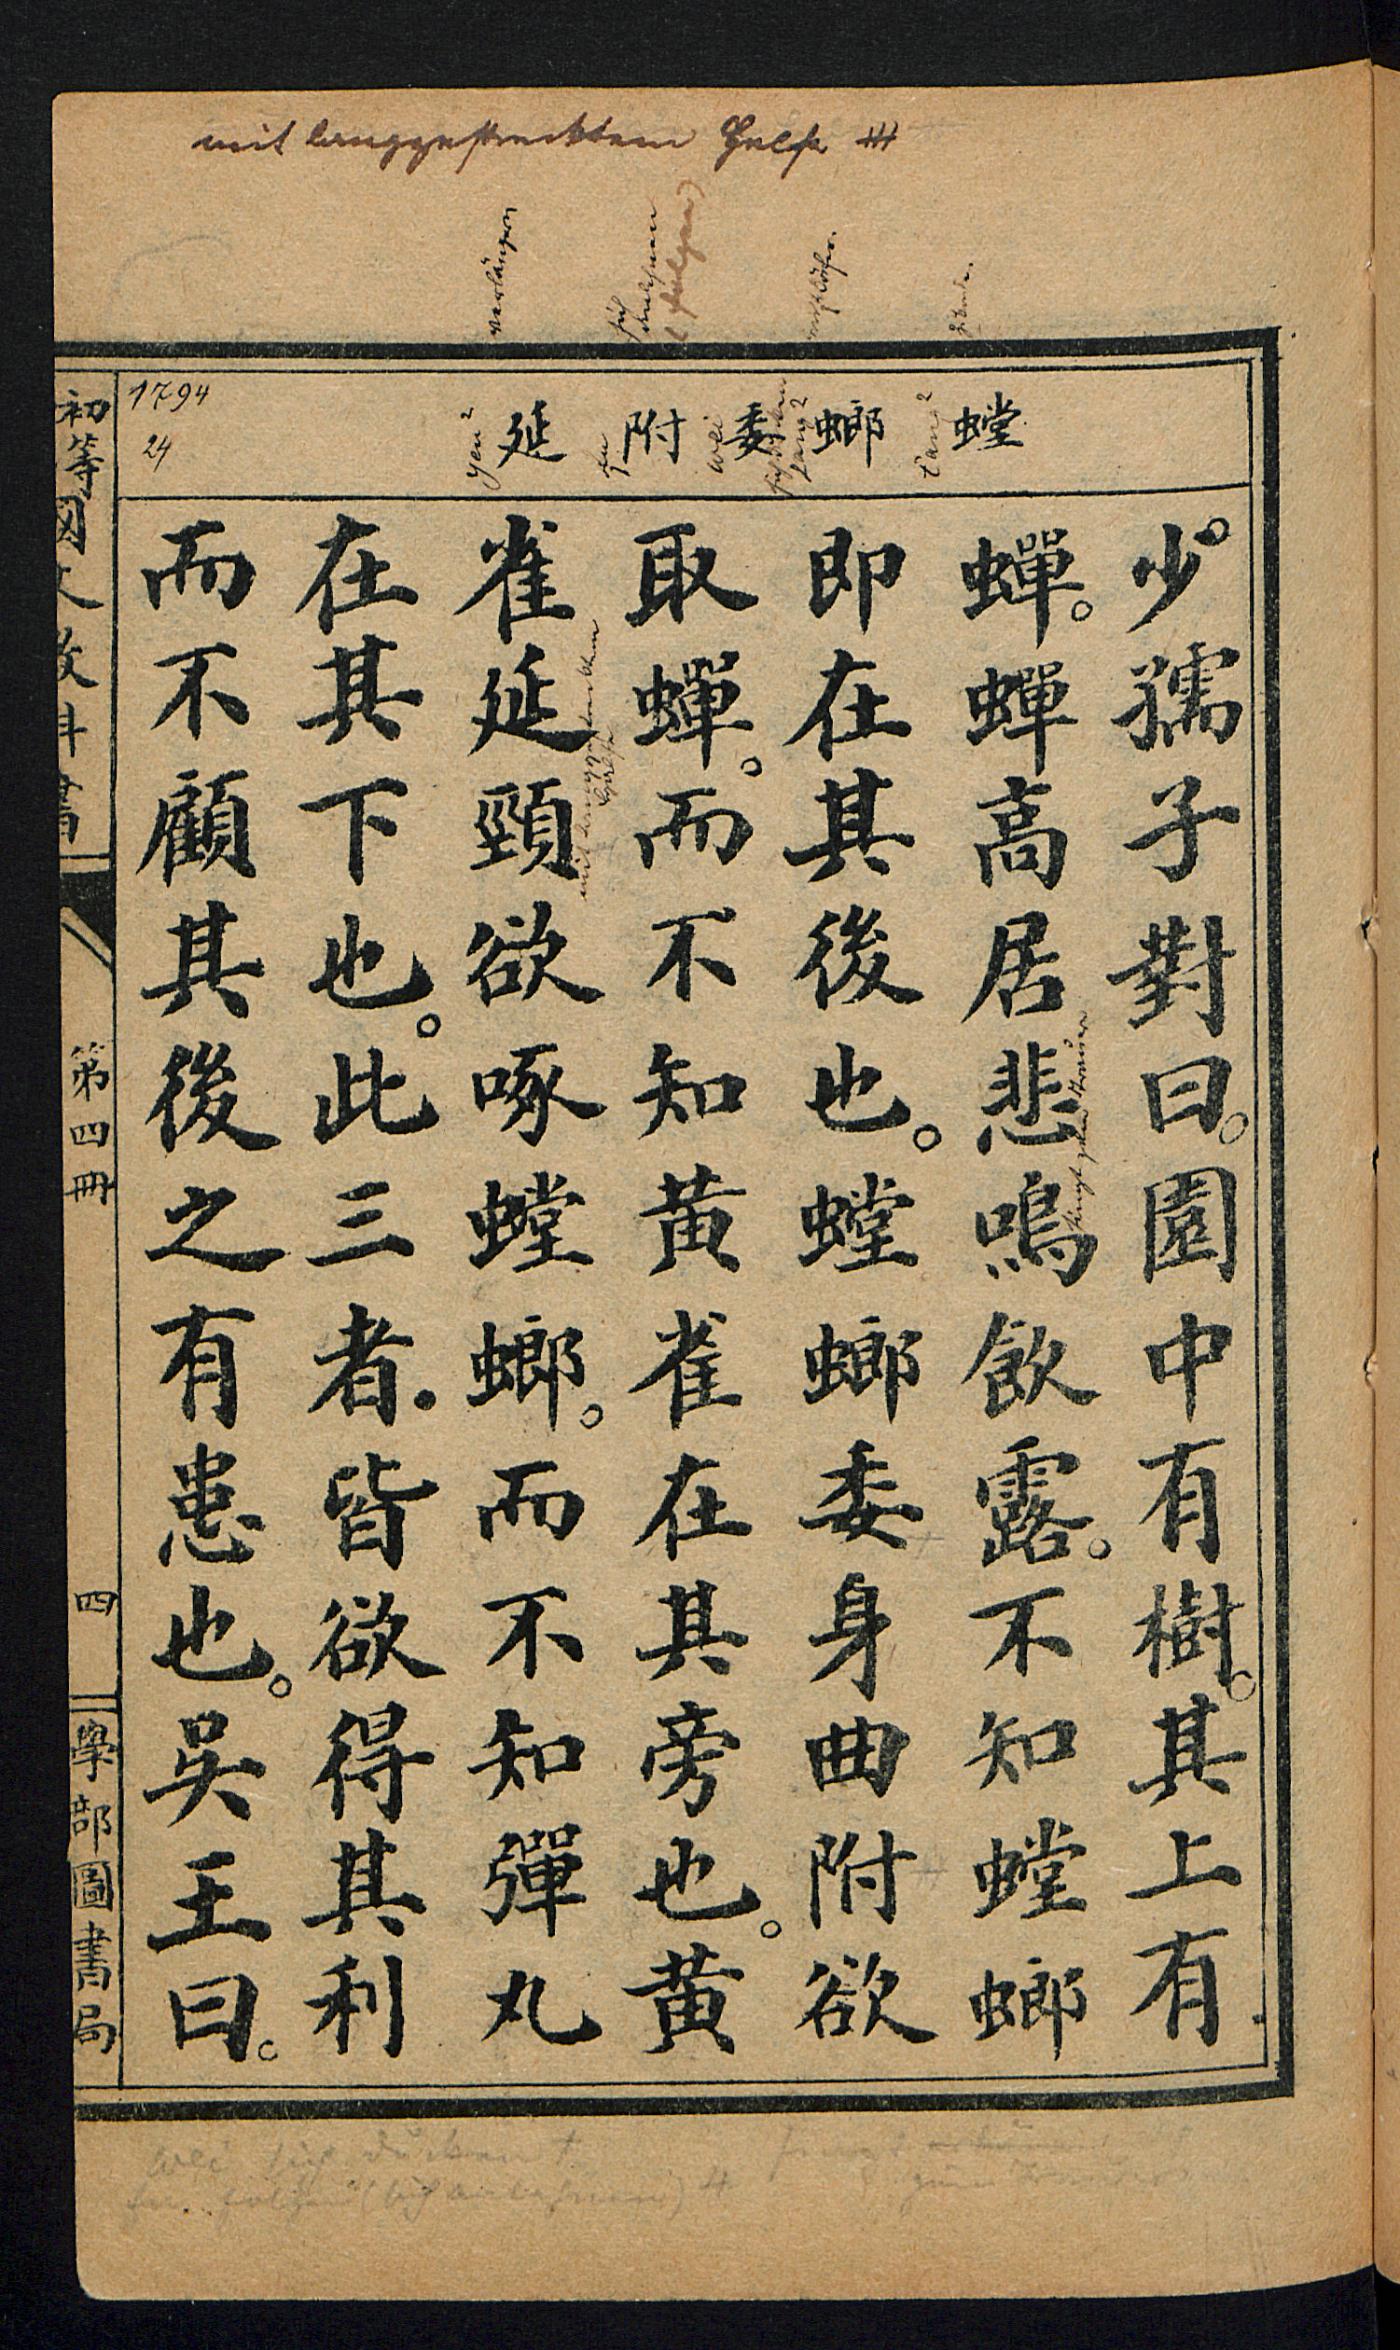 mit langgestrecktem Halse
verlängern
螳 螂 委 附 延
t'ang²
lang²
wei
fu
yen²
1794
24
少。孺子對曰。園中有樹。其上有
蟬。蟬高居悲鳴飲露。不知螳螂
即在其後也。螳螂委身曲附欲
取蟬。而不知黃雀在其旁也。黃
雀延頸欲啄螳螂。而不知彈丸
在其下也。此三者。皆欲得其利
而不顧其後之有患也。吳王曰。
mit langgestrecktem Halse
初等國文教科書
第四冊
四
學部圖書局